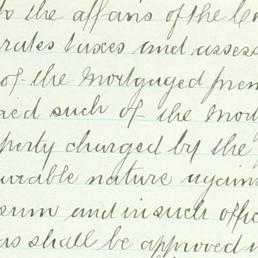 to the affairs of the Co
rates taxes and assess
of the mortgaged prem
aid such of the mort
perty charged by the
urable nature agains
sum and in such offic
as shall be approved